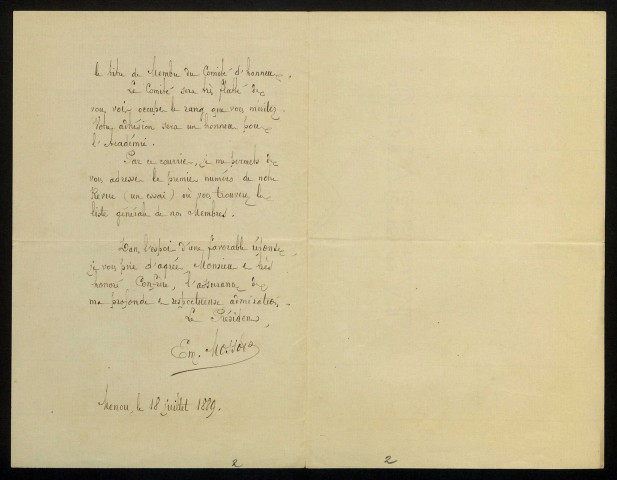 le titre de Membre du Comité d'honneur.
Le Comité sera très flatté de
vous voir occuper le rang que vous méritez.
Votre adhésion sera un honneur pour
l'Académie.
Par ce courrier, je me permets de
vous adresser le premier numéro de notre
Revue (un essai) où vous trouverez la
liste générale de nos Membres.
Dans l'espoir d'une favorable réponse,
je vous prie d'agréer, Monsieur et très
honoré Confrère, l'assurance de
ma profonde et respectueuse admiration.
Le Président,
Em.
Menou, le 18 juillet 1889.
2
2